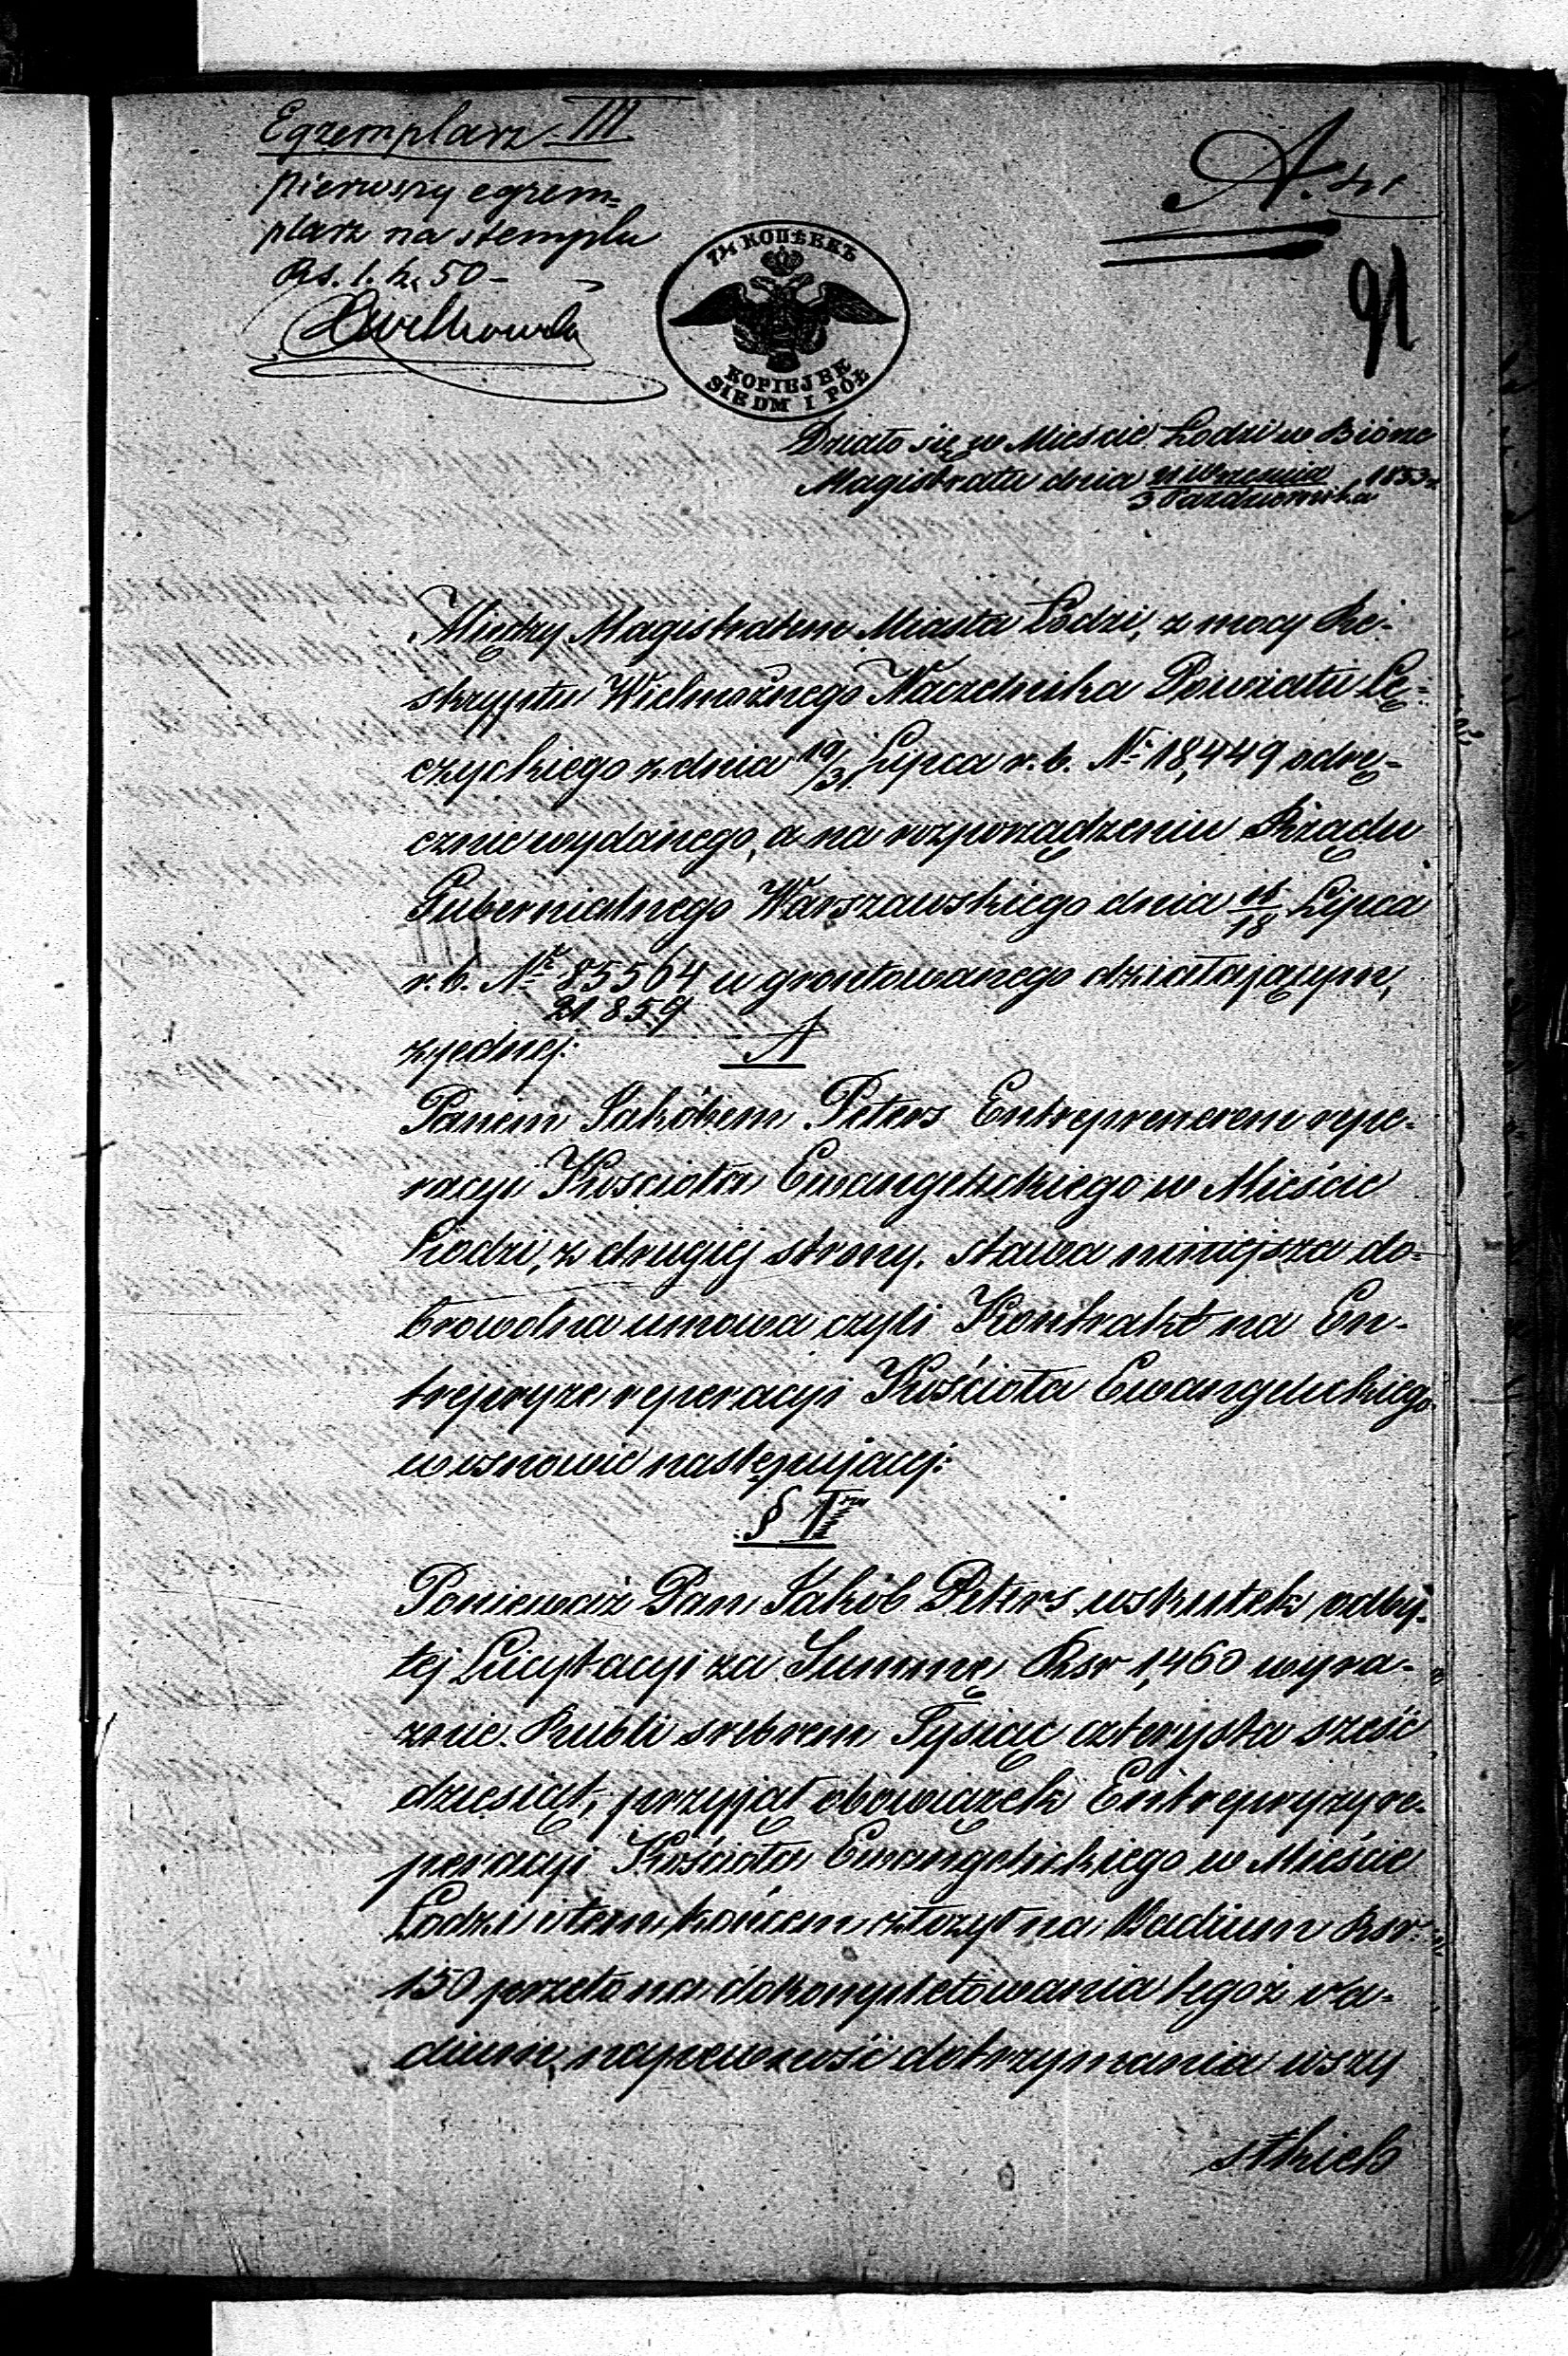 Egzemplarz III
Pierwszy egzem=
plarz na stemplu
Rs. 1. k. 50 -
A.
91
7½ КОПѢЕКЪ
KOPIEJEK
SIEDM I PÓŁ
Działo się w Mieście Łodzi w Biórze
Magistratu dnia Września 1853 r
3 Października
Między Magistratem Miasta Łodzi, z mocy Re-
skryptu Wielmożnego Naczelnika Powiatu Łę-
czyckiego z dnia 19/31 Lipca r. b. Nr 18,449 odrę-
cznie wydanego, a na rozporządzeniu Rządu
Gubernialnego Warszawskiego dnia /18 Lipca
r. b. Nr 85564 ugrontowanego działającym,
21859
z jednej:
A
Panem Jakóbem Peters Entreprenerem repe-
racyi Kościoła Ewangelickiego w Mieście
Łodzi, z drugiej strony. stawa niniejsza do-
browolna umowa czyli Kontrakt na En-
trepryze reperacyi Kościoła Ewangelickiego
w osnowie następującej:
§ 1
Ponieważ Pan Jakób Peters wskutek odby-
tej Licytacyi za Summę Rsr 1,460 wyra-
znie Rubli srebrem Tysiąc czterysta sześć
dziesiąt, przyjął obowiązek Entrepryzy re-
peracyi Kościoła Ewangelickiego w Mieście
Łodzi i tem końcem złożył na Vadium Rsr
150 przeto na dokompletowania tegoż va-
dium, na pewność dotrzymania wszy
stkich